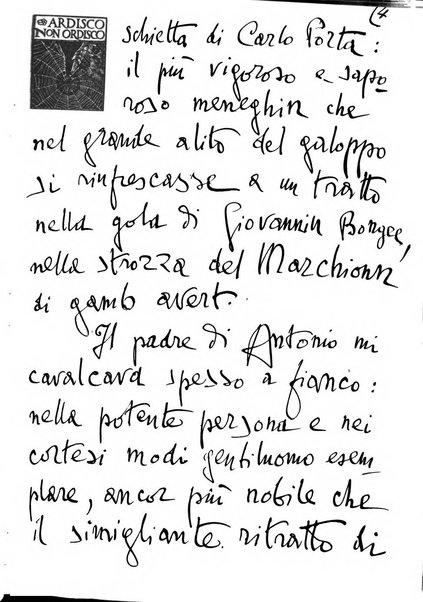 (4
ARDISCO
NON ORDISCO
schietta di Carlo Porta:
il più vigoroso e sapo
roso meneghin che
nel grande alito del galoppo
si rinfrescasse a un tratto
nella gola di Giovannin Bongee,
nella strozza del Marchionn
di gamb avert.
Il padre di Antonio mi
cavalcava spesso a fianco:
nella potente persona e nei
cortesi modi gentiluomo esem
plare, ancor più nobile che
il simigliante ritratto di